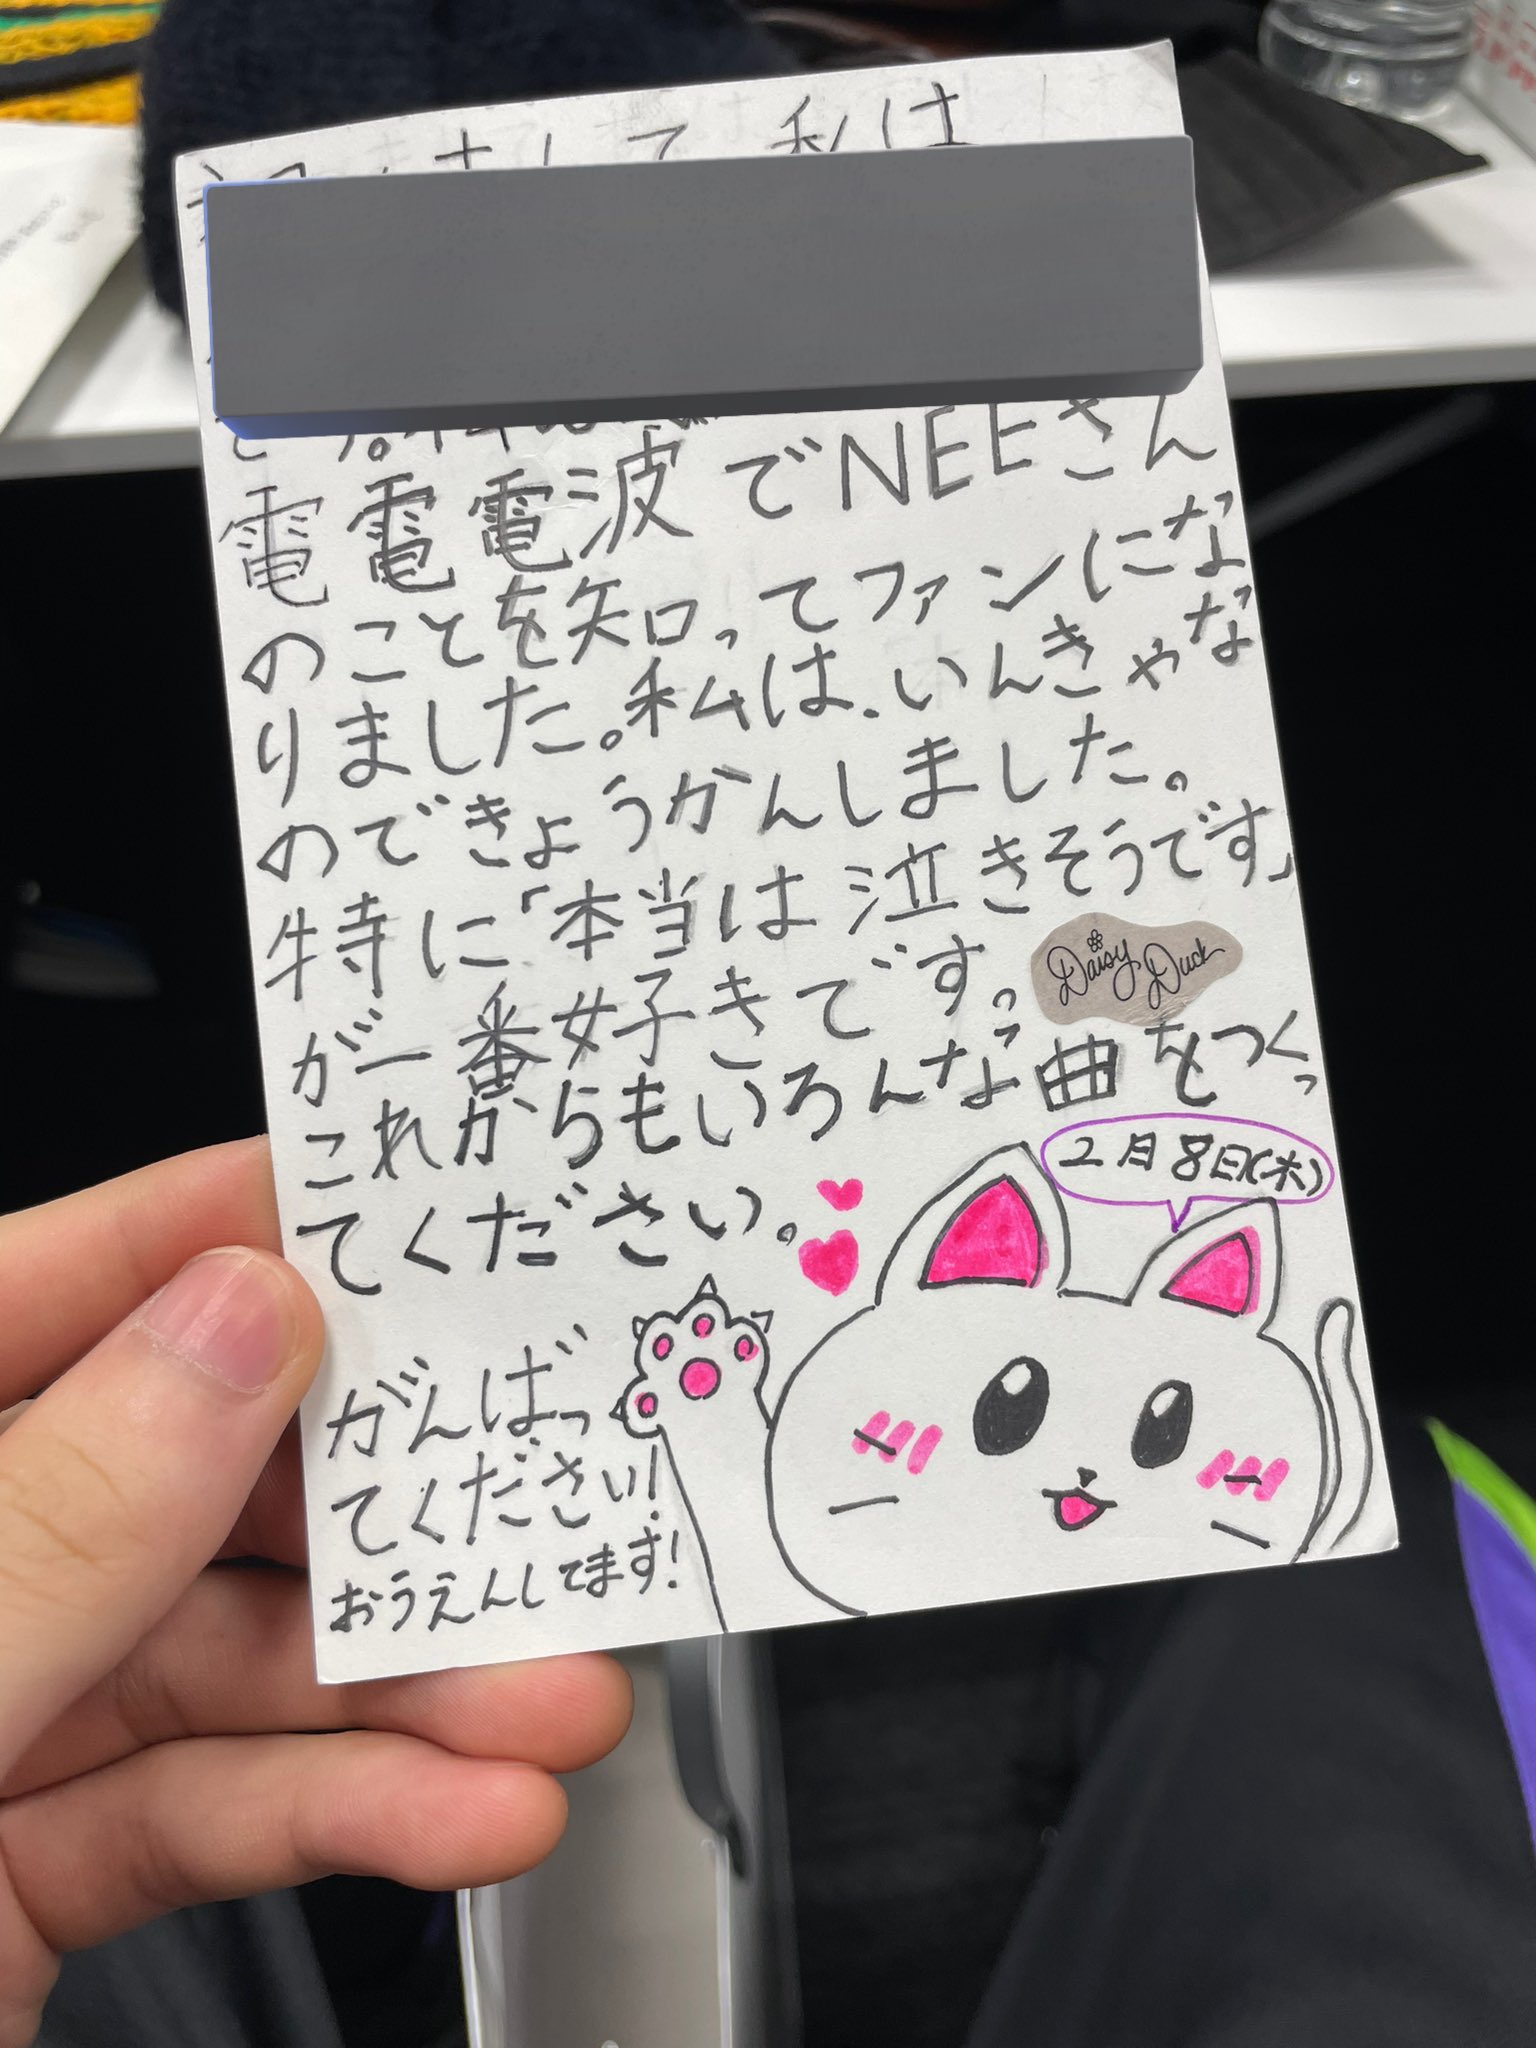 私は
電電電波でNEEさん
のことを知ってファンにな
りました。私は、いんきゃな
のできょうかんしました。
特に「本当は泣きそうです」
が一番好きです。
Daisy Duck
これからもいろんな曲をつくっ
てください。
2月8日(木)
がんばっ
てください!
おうえんしてます!